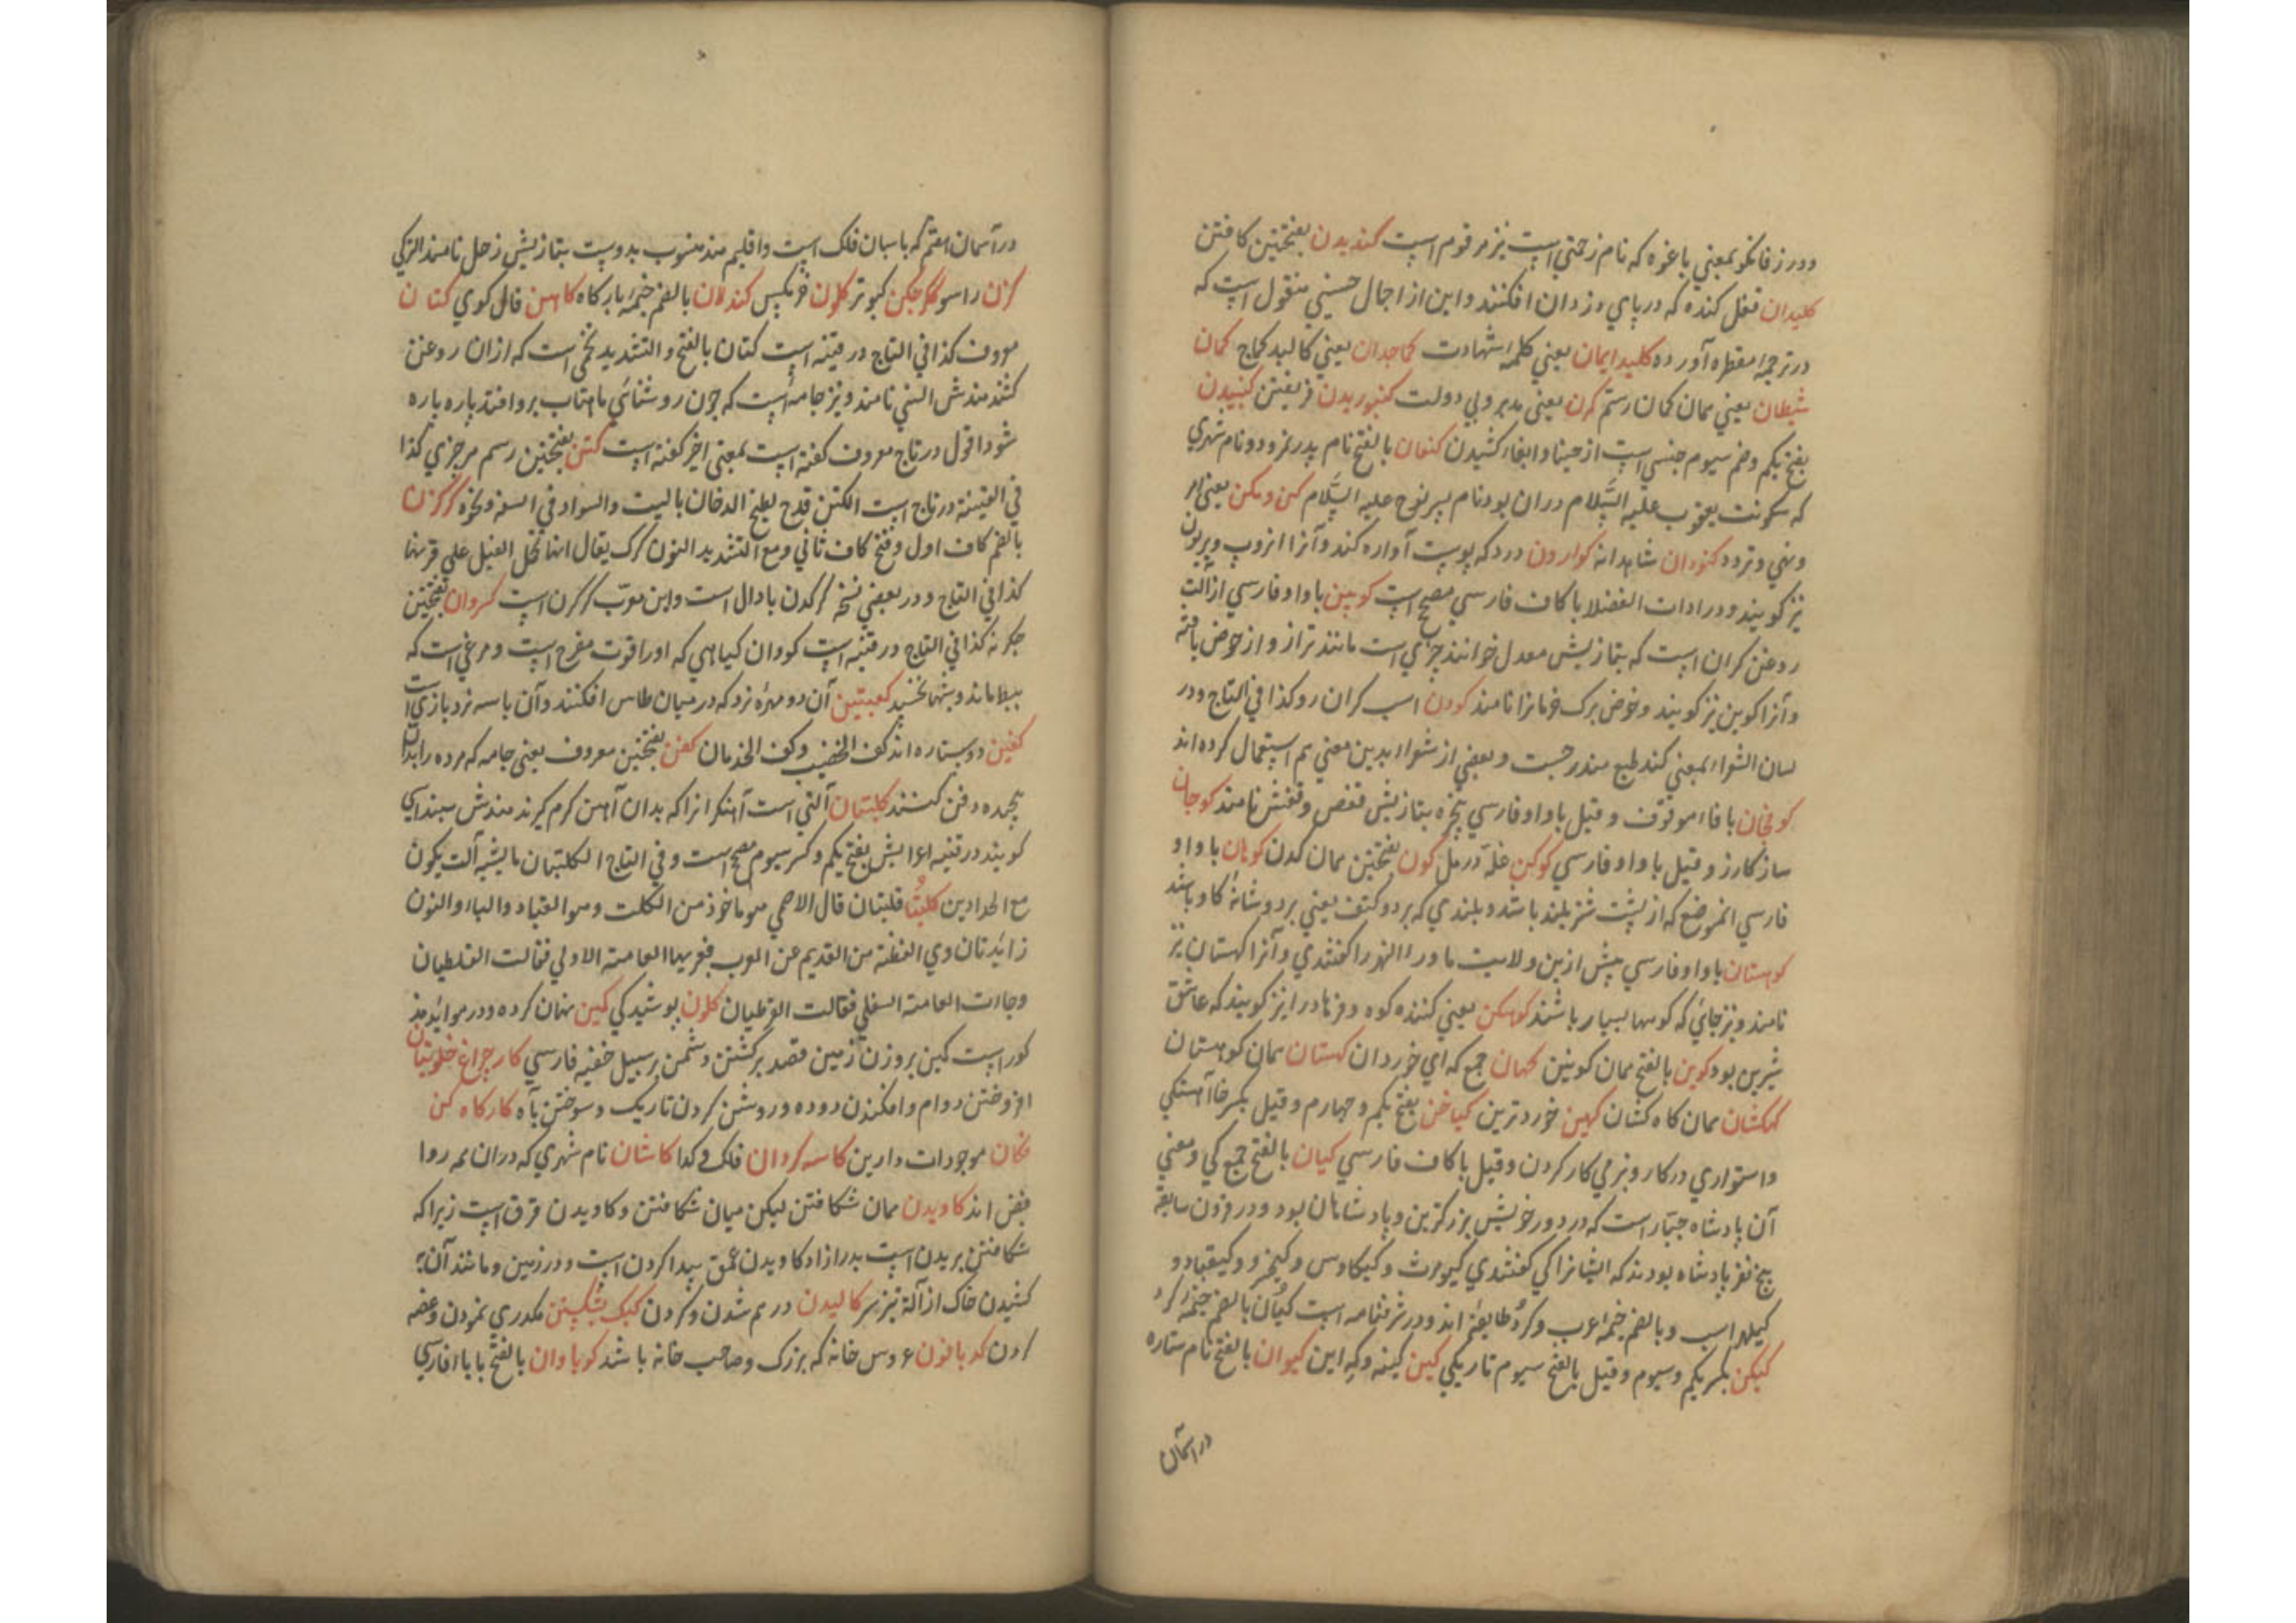 ودر زفانکو بمعنی باغوه که نام زحمتی است نیز مرقوم است کندیدن بفتحتین کافتن
کلیدان قفل کنده که در پای دزدان افکنند و این از اجمال حسینی منقول است که
در ترجمه آورده کلید ایمان یعنی کلمه شهادت کماجدان یعنی کالبد کماج کمان
شیطان یعنی همان کمان رستم کرن یعنی مدبر وبی دولت کنبوریدن فریفتن کنبیدن
بفتح یکم وضم سیوم جنسی است از کشیدن کنعان بالفتح نام پدر نمرود ونام شهری
که سکونت یعقوب علیه السلام دران بود نام پسر نوح علیه السلام کن ومکن یعنی امر
ونهی وتردد کنودان شاهدانه کوارون درد که پوست آواره کند وآنرا انروب وبریون
نیز کویند ودر ادات الفضلا با کاف فارسی مصحح است کوبین با واو فارسی از آلت
روغن کران است که بتازیش معدل خوانند چیزی است مانند ترازو از خوص بافته
وآنرا کوبین نیز کویند وخوص برک خرمانرا نامند کودن اسب کران رو کذا فی التاج ودر
لسان الشعرا بمعنی کند طبع مندرجست وبعضی از شعرا بدین معنی هم استعمال کرده اند
کوفجان با فاء موقوف وقیل با واو فارسی پنجره بتازیش قفص وقفش نامند کوجان
ساز کارز وقیل با واو فارسی کوکن غله در مل کون بفتحتین همان کدن کوهان با واو
فارسی انموضع که از پشت شتر بلند باشد وبلندی که بر دو کتف یعنی بر دو شانه کاو باشد
کوهستان با واو فارسی پیش ازین ولایت ماورا النهر را کفتندی وآنرا کهستان نیز
نامند ونیز جائی که کوهها بسیار باشند کوهکن یعنی کننده کوه وفرهاد را نیز کویند که عاشق
شیرین بود کوین بالفتح همان کوبین کهان جمع که ای خوردان کهستان همان کوهستان
کهکشان همان کاه کشان کهین خوردترین کیاخن بفتح یکم وچهارم وقیل بکسر خا آهستکی
واستواری در کار وبنرمی کار کردن وقیل با کاف فارسی کیان بالفتح جمع کی ومعنی
آن پادشاه جبار است که در دور خویش بزرکترین پادشاهان بود ودر قرون سابقه
پنج نفر پادشاه بودند که ایشانرا کی کفتندی کیومرث وکیکاوس وکیخسرو وکیقباد و
کیلهراسب وبالضم خیمه اعرب وکرد طایفه اند ودر شرفنامه است کیان بالضم خیمه کرد
کیکن بکسر یکم وسیوم وقیل بالفتح سیوم تاریکی کین کینه وکه این کیوان بالفتح نام ستاره
در آسمان
در آسمان هفتم که پاسبان فلک است واقلیم هند منسوب بدوست بتازیش زحل نامند الترکی
کزن راسو ککرجکن کبوتر کلون فربکیس کندلان بالضم خیمه بارکاه کاهن فال کوی کتان
معروف کذا فی التاج در قنیه است کتان بالفتح والتشدید تخمی است که ازان روغن
کشند هندش السی نامند ونیز جامه است که چون روشنائی ماهتاب برو افتد پاره پاره
شود اقول در تاج معروف کفته است بمعنی اخیر کفته است کتن بفتحتین رسم هر چیزی کذا
فی القنیة در تاج است الکتن الدخان بالبیت والسواد فی الشفه ونحوه کرکزن
بالضم کاف اول وفتح کاف ثانی ومع التشدید النون کرک یقال انها تحمل الفیل علی قرنها
کذا فی التاج ودر بعضی نسخ کرکدن بادال است واین معرب کرکزن است کروان بفتحتین
جکر نه کذا فی التاج در قنیه است کروان کیاهی که اورا قوت مفرح است ومرغی است که
ببط ماند وشبها نخسپد کعبتین آن دو مهره نرد که در میان طاس افکنند وآن با سه نرد بازی است
کفین دو ستاره اند کف الخضیب وکف الجذمان کفن بفتحتین معروف یعنی جامه که مرده را بدان
پیچیده دفن کنند کلبتان آلتی است آهنکرانرا که بدان آهن کرم کیرند هندش سنداسی
کویند در قنیه اعرابش بفتح یکم وکسر سیوم مصحح است وفی التاج الکلبتان ما یشبه آلت یکون
مع الحدادین کلبتا قلبتان قال الاصمعی هو ماخوذ من الکلب وهو القیاده والتاء والنون
زایدتان وهی اللفظة من القدیم عن العرب فغیرها العامة الاولی فقالت القلطبان
وجاءت العامة السفلی فقالت القرطبان کلون پوشیدکی کمین پنهان کرده ودر موائد مذ
کور است کمین بر وزن زمین قصد بر کشتن دشمن بر سبیل خفیه فارسی کار چراغ خلوتیان
افروختن دوام وافکندن دوده وروشن کردن تاریک وسوختن باه کارکاه کن
فکان موجودات دارین کاسه کردان فلک وکدا کاشان نام شهری که دران همه روا
فض اند کاویدن همان شکافتن لیکن میان شکافتن وکاویدن فرق است زیرا که
شکافتن بریدن است بدرازا وکاویدن عمق پیدا کردن است ودر زمین ومانند آن
کشیدن خاک از آلة تیز سر کالیدن درهم شدن وکردن کبک شکستن مکدری نمودن وغصه
کردن کدبانون عروس خانه که بزرک وصاحب خانه باشد کوباوان بالفتح با باء فارسی